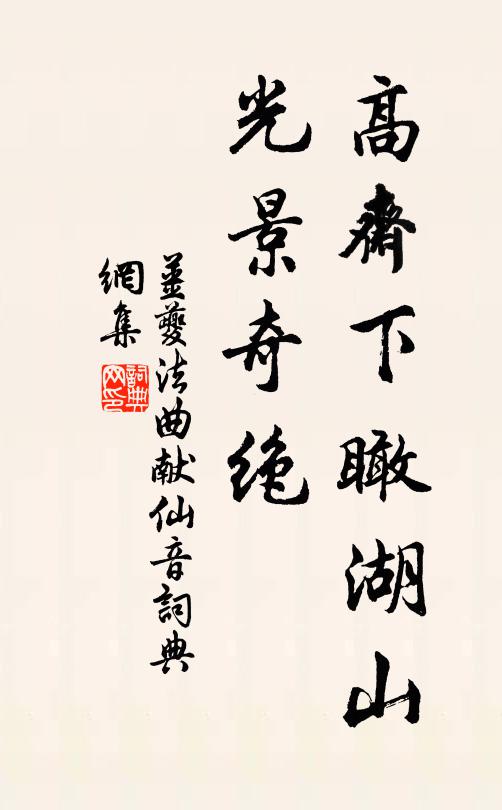 高齋下瞰湖山
光景奇绝
姜夔法曲献仙音詞典
網集
詞典
网印